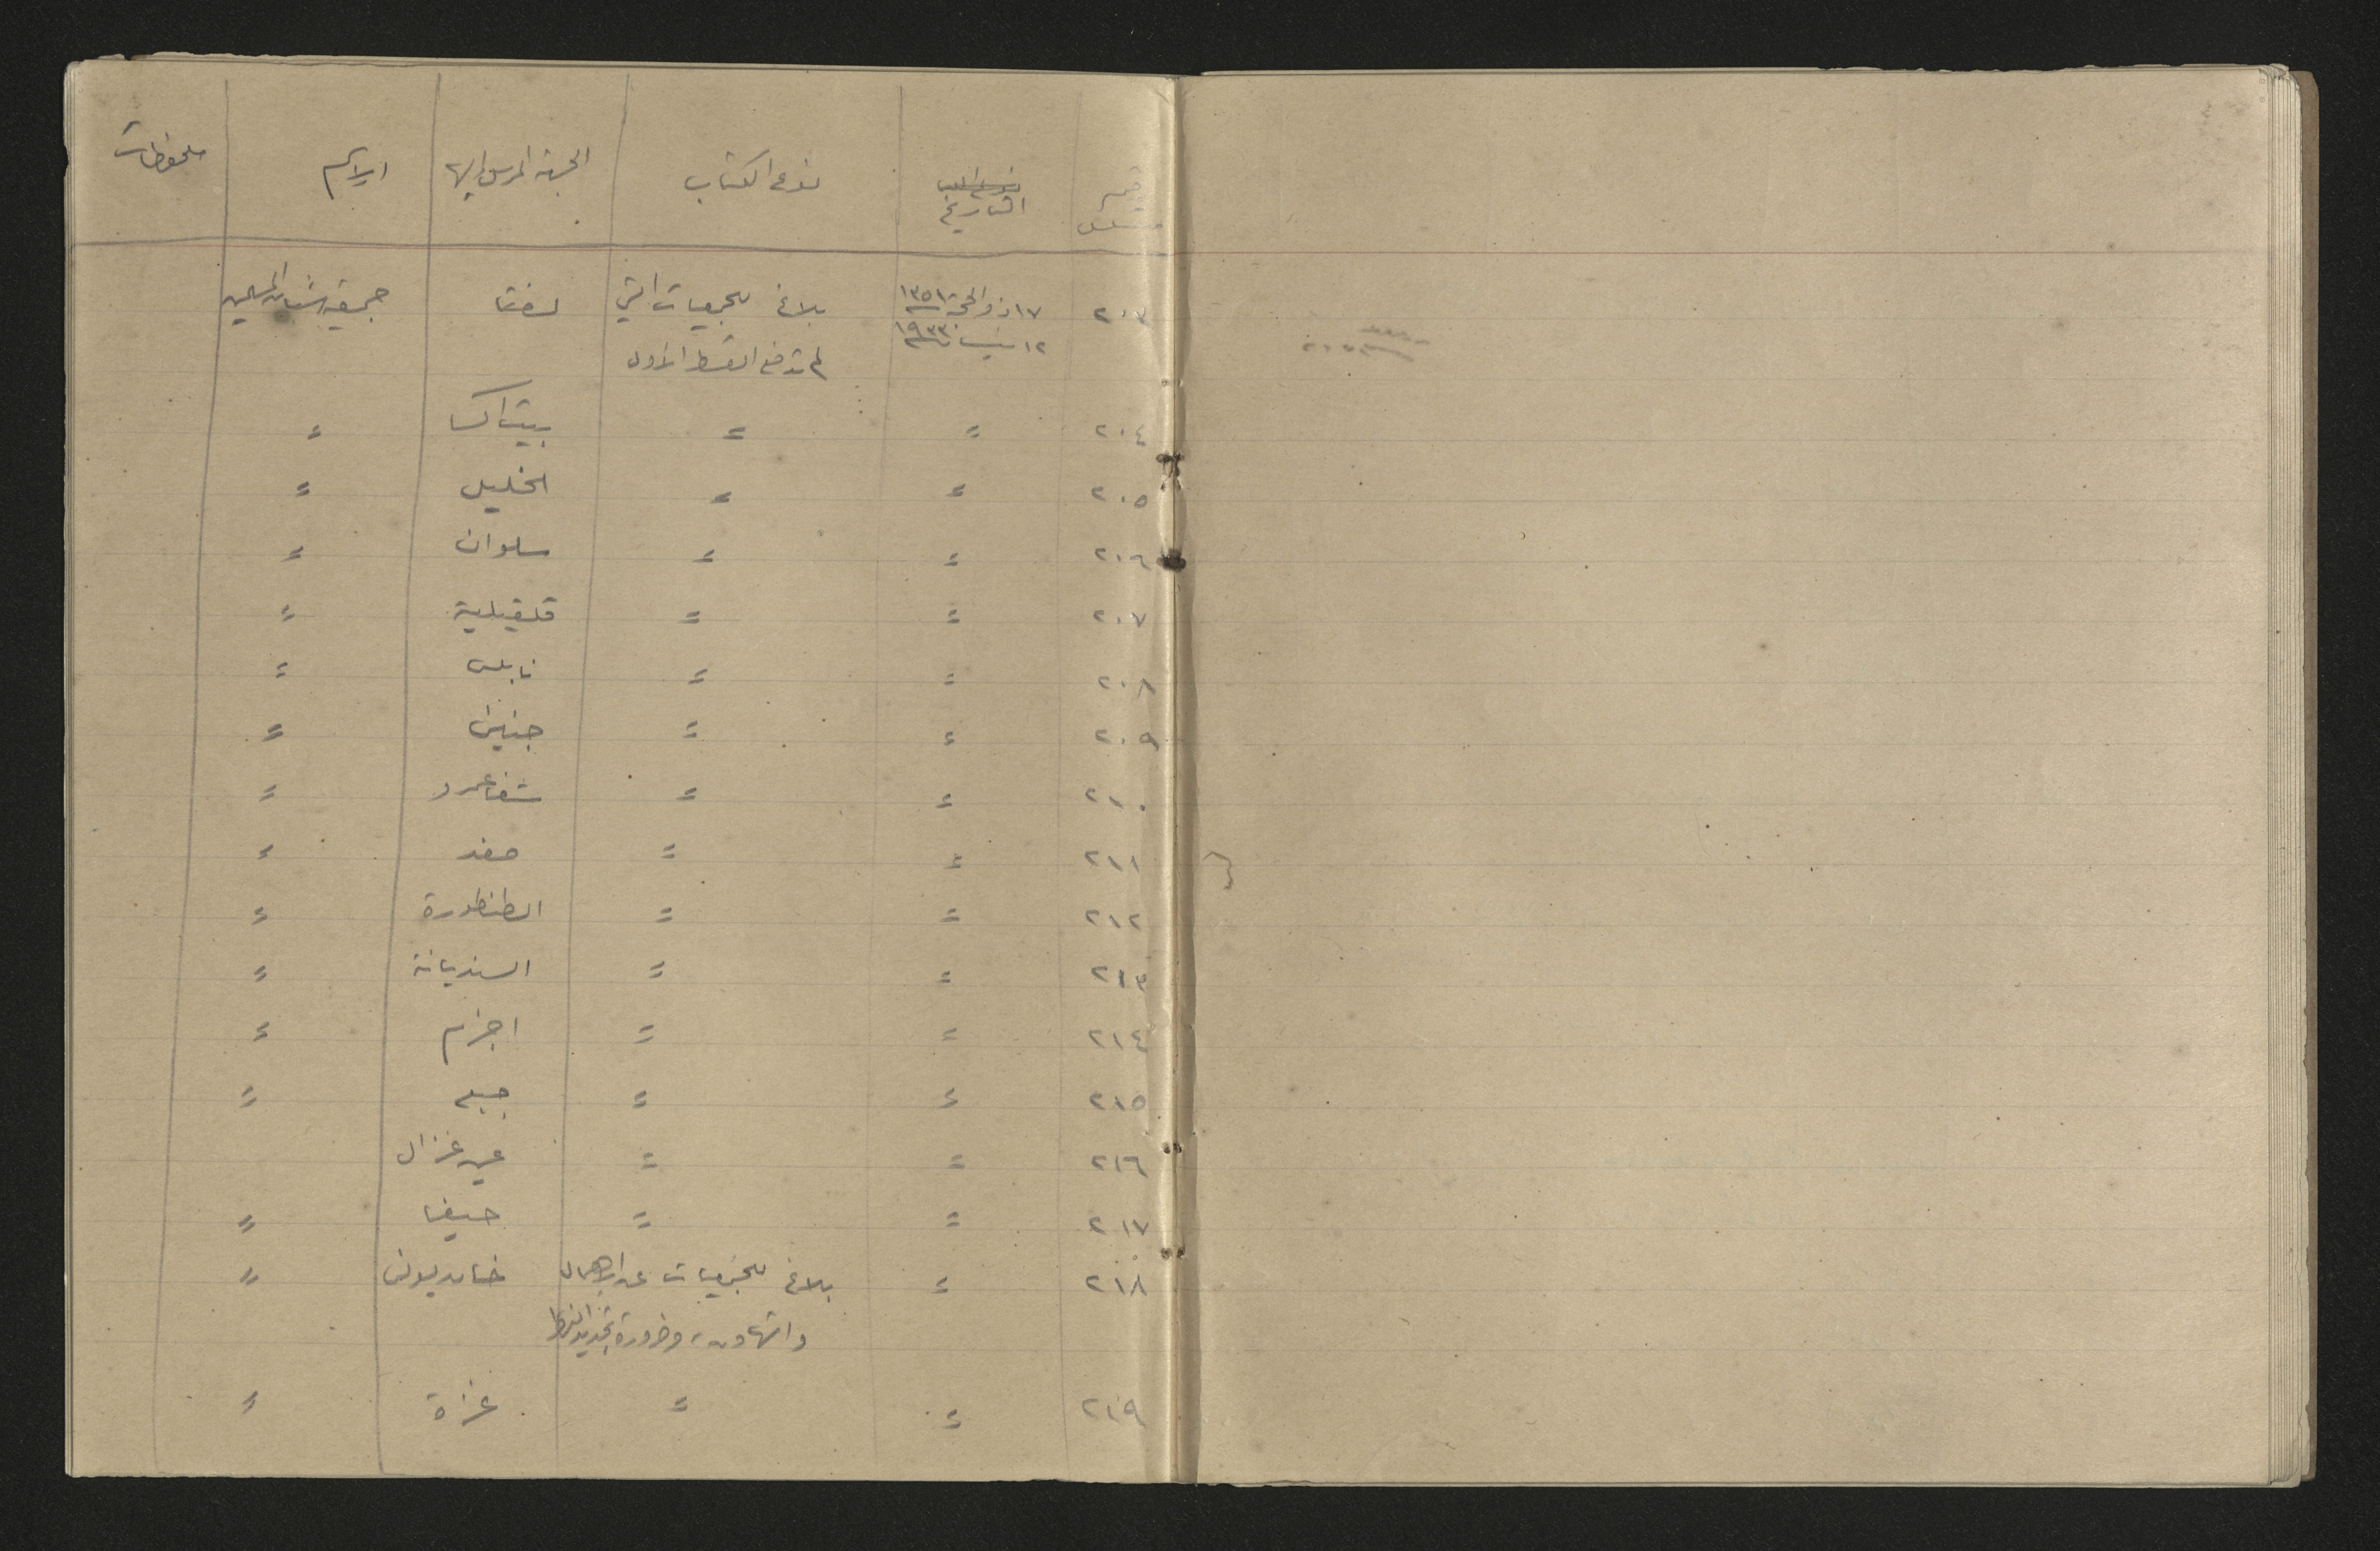 رقم متسلسل | التاريخ | نوع الكتاب | الجهة المرسل اليها | الاسم | ملحوظات
٢٠٣ | ١٧ ذو الحجة ١٣٥١ | بلاغ للجمعيات التي | لفتا | جمعية الشبان المسلمين
١٢ نيسان ١٩٣٣ | لم تدفع القسط الأول
٢٠٤ | = | = | بيت اكسا | =
٢٠٥ | = | = | الخليل | =
٢٠٦ | = | = | سلوان | =
٢٠٧ | = | = | قلقيلية | =
٢٠٨ | = | = | نابلس | =
٢٠٩ | = | = | جنين | =
٢١٠ | = | = | شفاعمرو | =
٢١١ | = | = | صفد | =
٢١٢ | = | = | الطنطورة | =
٢١٣ | = | = | السنديانة | =
٢١٤ | = | = | اجزم | =
٢١٥ | = | = | جبع | =
٢١٦ | = | = | عين غزال
٢١٧ | = | = | حيفا | =
٢١٨ | = | بلاغ للجمعيات عن الاهمال | خان يونس | =
والتهاون، وضرورة تجديد النشاط
٢١٩ | = | = | غزة | =